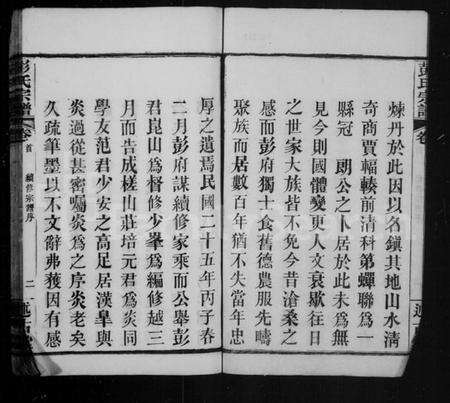 彭氏宗譜
卷
煉丹於此因以名鎮其地山水清
奇商賈輻輳前清科第蟬聯為一
縣冠　朗公之卜居於此未為無
見今則國體變更人文衰歇往日
之世家大族皆不免今昔滄桑之
感而彭府獨士食舊德農服先疇
聚族而居數百年猶不失當年忠
厚之遺焉民國二十五年丙子春
二月彭府謀續修家乘而公舉彭
君昆山為督修少峯為編修越三
月而告成槎山莊培元君為炎同
學友范君少安之高足居漢臯與
炎過從甚密囑炎為之序炎老矣
久疏筆墨以不文辭弗獲因有感
彭氏宗譜
卷首
續修宗譜序
二
述